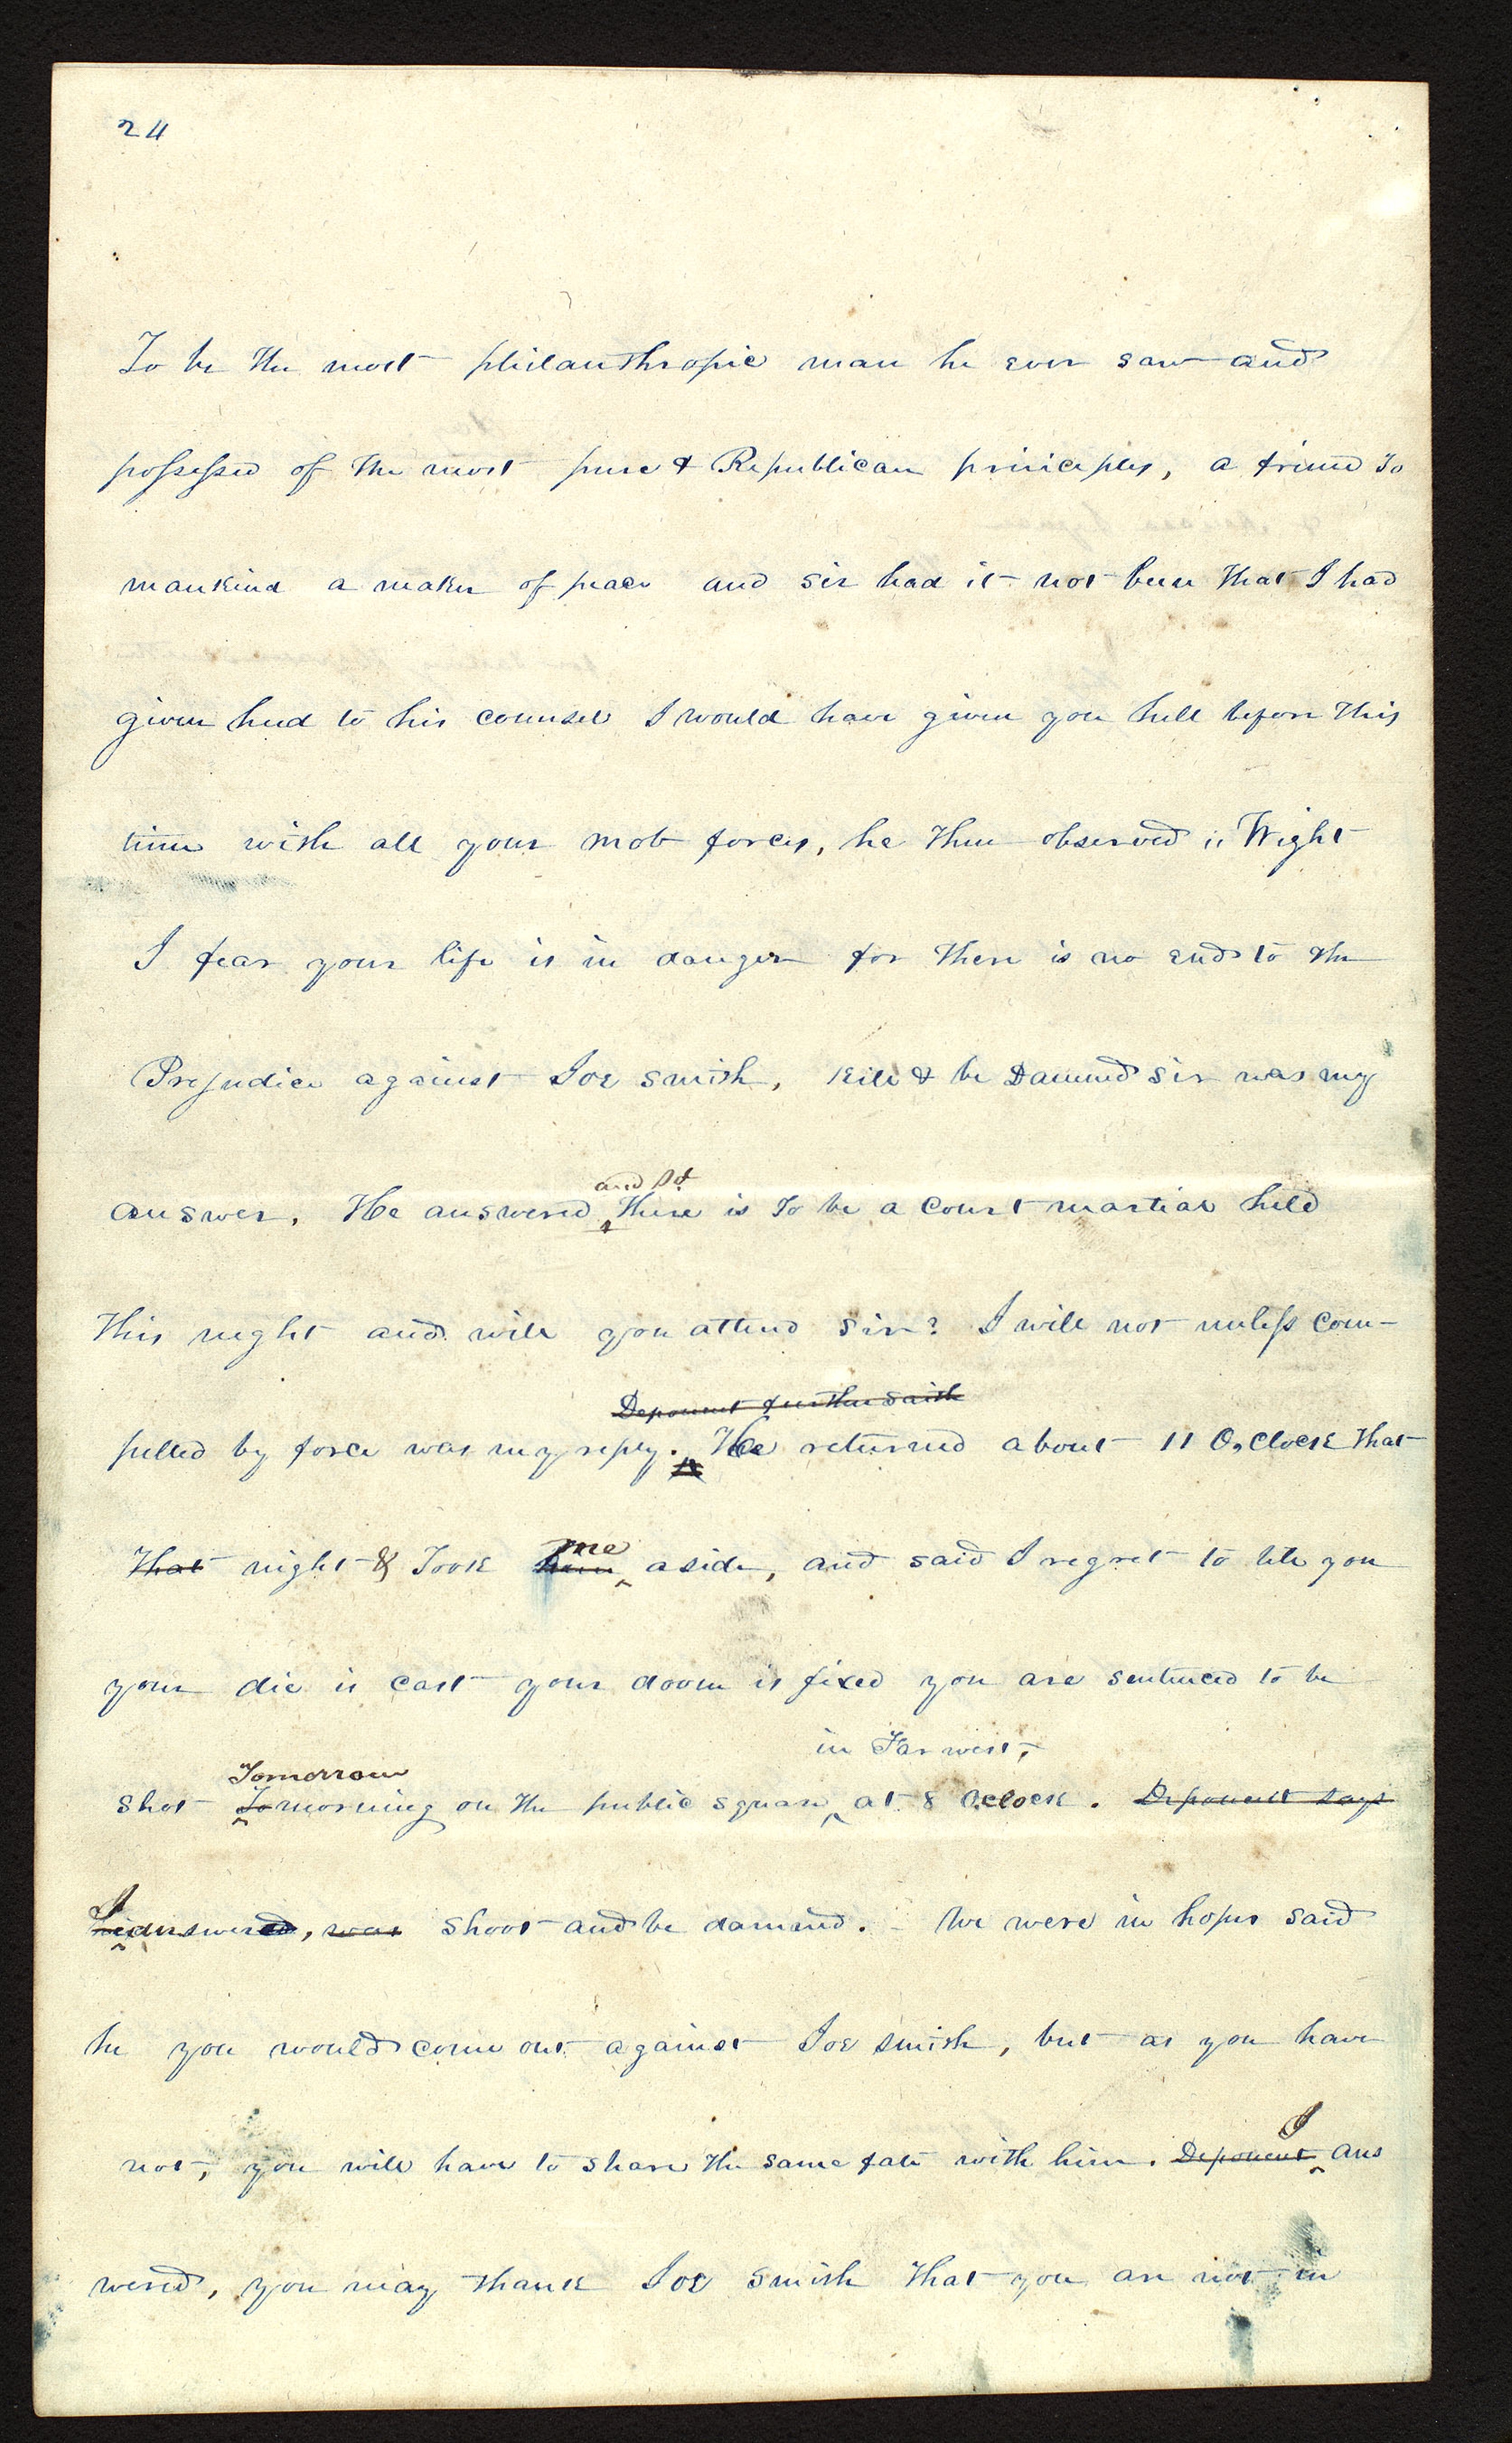 24
To be the most philanthropic man he ever saw and
possessed of the most pure & Republican principles, a friend to
mankind a maker of peace and sir had it not been that I had
given heed to his counsel I would have given you hell before this
time with all your mob forces, he then observed " Wight
I fear your life is in danger for there is no end to the
Prejudice against Joe smith, kill & be Damned sir was my
and sd.
answer. He answered There is to be a court martial held
this night and will you attend sir? I will not unless com-
Deponent further saith
pelled by force was my reply. He returned about 11 O,clock that
That night & Took him me aside, and said I regret to tell you
your die is cast your doom is fixed you are sentenced to be
Tomorrow in Far west,
shot To morning on the public square at 8 oclock. Deponent says
I
he answered, was shoot and be damned. - We were in hopes said
he you would come out against Joe smith, but as you have
I
not, you will have to share the same fate with him. Deponent ans
wered, you may thank Joe Smith that you are not in